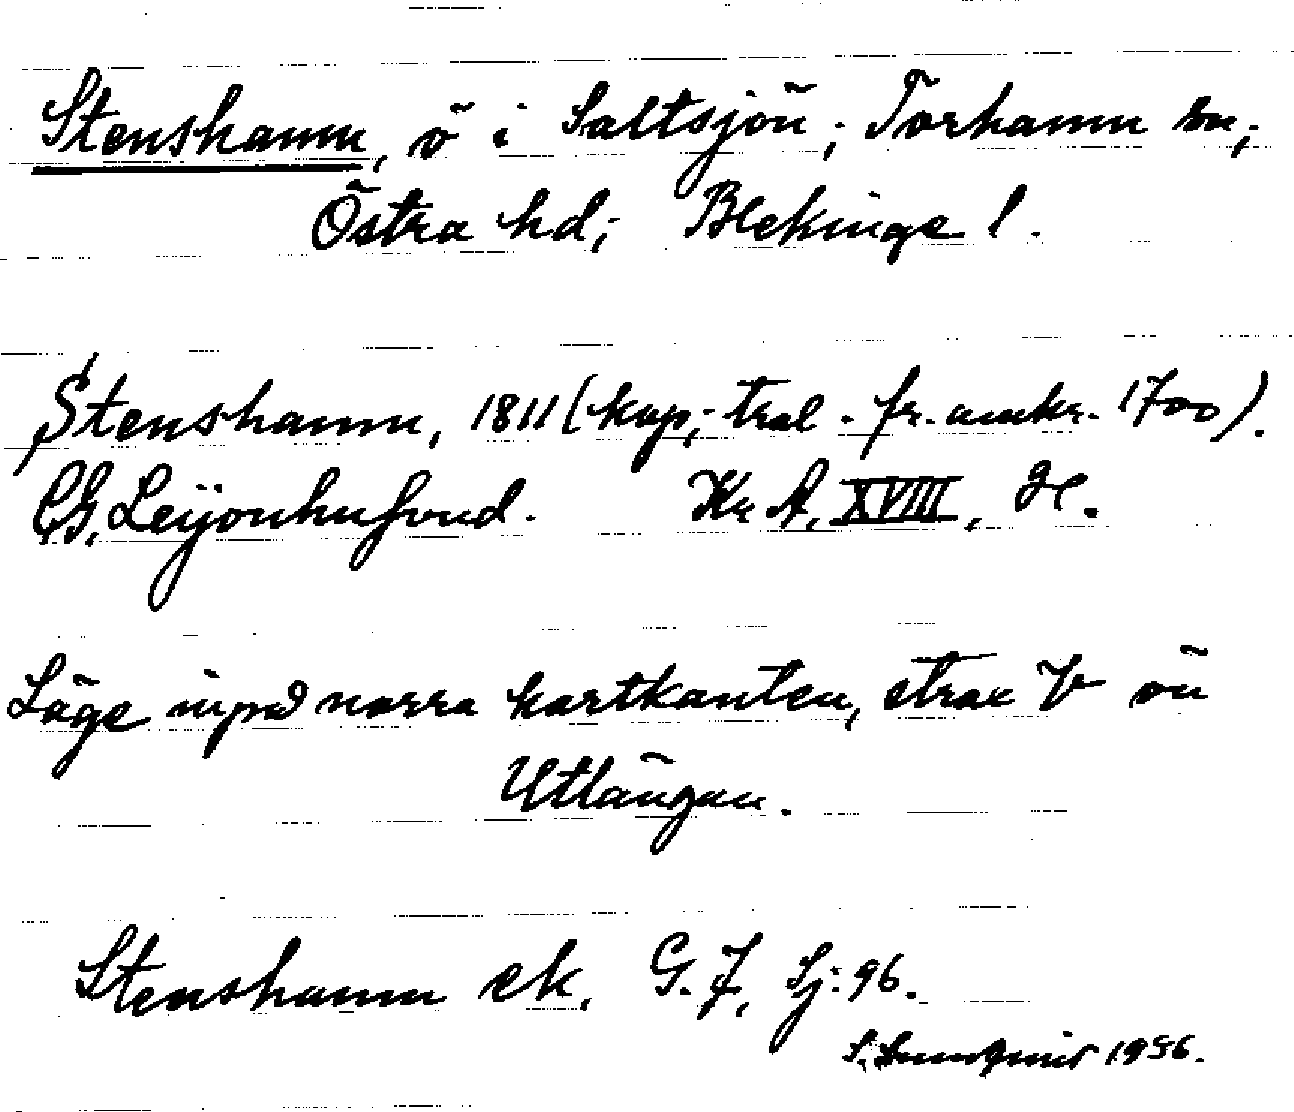 Stenshamn, ö i Saltsjön; Torhamn sn;
Östra hd; Blekinge l.
Stenshamn, 1811 (kop; trol. fr. omkr. 1700).
CG. Leijonhufvud. Kr A, XVIII,
Läge inpå norra kartkanten, strax V ön
Utlängan.
Stenshamn ek. G. J, Sj: 96.
1956.